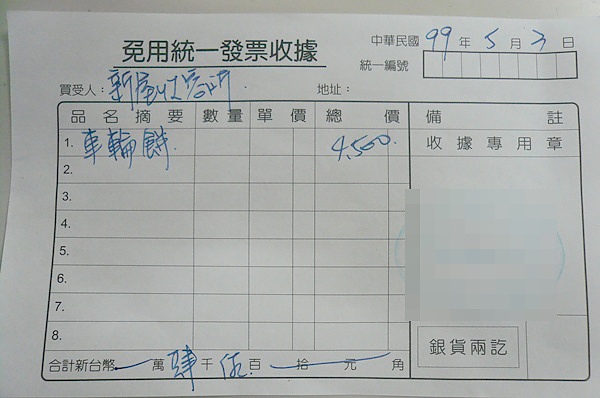 免用統一發票收據
中華民國 99 年 5 月 3 日
統一編號
買受人： 地址：
品名摘要 數量 單價 總價 備註
1. 車輪餅 4,500. 收據專用章
2.
3.
4.
5.
6.
7.
8.
銀貨兩訖
合計新台幣 萬 肆 千 伍 百 拾 元 角